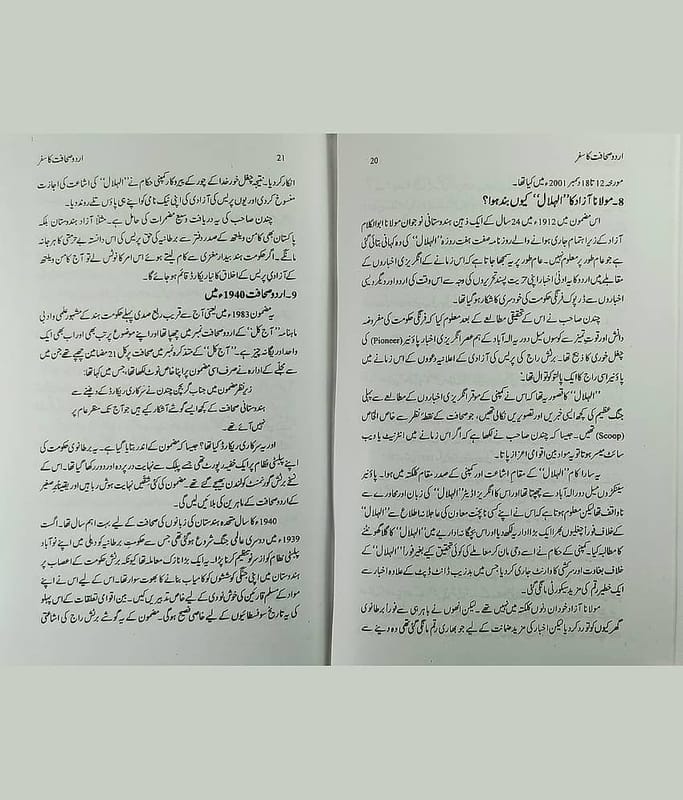 اردو صحافت کا سفر
20
مورخہ 12 تا 18 دسمبر 2001ء میں کیا تھا۔
8۔ مولانا آزاد کا ''الہلال'' کیوں بند ہوا؟
اس مضمون میں 1912ء میں 24 سال کے ایک ذہین ہندوستانی نوجوان مولانا ابوالکلام
آزاد کے زیر اہتمام جاری ہونے والے روزنامہ صفت ہفت روزہ ''الہلال'' کی وہ کہانی بتائی گئی
ہے جو عام طور پر معلوم نہیں۔ عام طور پر یہ سمجھا جاتا ہے کہ اس زمانے کے انگریزی اخباروں کے
مقابلے میں اردو کا یہ ادنیٰ اخبار اپنی حریت پسند تحریروں کی وجہ سے اس وقت کی اردو اور دیگر دیسی
اخباروں سے ڈرپوک فرنگی حکومت کی خودسری کا شکار ہو گیا تھا۔
چندن صاحب نے اس کے تحقیقی مطالعے کے بعد معلوم کیا کہ فرنگی حکومت کی مفروضہ
دانش اور قوت تمیز سے کوسوں میل دور یہ الہ آباد کے ہم عصر انگریزی اخبار پاؤنیر (Pioneer) کی
چغل خوری کا ذبیح تھا۔ برٹش راج کی پریس کی آزادی کے اعلانیہ دعووں کے اس زمانے میں
پاؤنیر اسی راج کا ایک پالتو کوتوال تھا۔
''الہلال'' کا قصور یہ تھا کہ اس نے کمپنی کے موقر انگریزی اخباروں کے مطالعے سے پہلی
جنگ عظیم کی کچھ ایسی خبریں اور تصویریں نکالی تھیں، جو صحافت کے نقطۂ نظر سے خاص الخاص
(Scoop) تھیں۔ جیسا کہ چندن صاحب نے لکھا ہے کہ اگر اس زمانے میں انٹرنیٹ یا ویب
سائٹ میسر ہوتا تو یہ مواد بین اقوامی اعزاز پاتا۔
یہ سارا کام ''الہلال'' کے مقام اشاعت اور کمپنی کے صدر مقام کلکتہ میں ہوا۔ پاؤنیر
سینکڑوں میل دور الہ آباد سے چھپتا تھا اور اس کا انگریز اڈیٹر ''الہلال'' کی زبان اور محاورے سے
ناواقف تھا لیکن معلوم ہوتا ہے کہ اس نے اپنے کسی ناپخت معاون کی عاجلانہ اطلاع سے ''الہلال''
کے خلاف فوراً چغلیوں بھرا ایک بڑا اداریہ لکھ دیا اور اس بچگانہ اداریے میں ''الہلال'' کا گلا گھونٹنے
کا مطالبہ کیا۔ کمپنی کے حکام نے اسے وحی مان کر معاملے کی کوئی تحقیق کیے بغیر فوراً ''الہلال'' کے
خلاف بغاوت اور سرکشی کا وارنٹ جاری کر دیا جس میں بدزیب ڈانٹ ڈپٹ کے علاوہ اخبار سے
ایک خطیر رقم کی مزید سیکورٹی مانگی گئی۔
مولانا آزاد خود ان دنوں کلکتہ میں نہیں تھے۔ لیکن انھوں نے باہر ہی سے فوراً برطانوی
گھرکیوں کو تو رد کر دیا لیکن اخبار کی مزید ضمانت کے لیے جو بھاری رقم مانگی گئی تھی وہ دینے سے
21
اردو صحافت کا سفر
انکار کر دیا۔ نتیجۃً چغل خور خدا کے چور کے پیروکار کمپنی حکام نے ''الہلال'' کی اشاعت کی اجازت
منسوخ کر دی اور یوں پریس کی آزادی کی اپنی نیک نامی کو اپنے ہی پاؤں تلے روند دیا۔
چندن صاحب کی یہ دریافت وسیع مضمرات کی حامل ہے۔ مثلاً آزاد ہندوستان بلکہ
پاکستان بھی کامن ویلتھ کے صدر دفتر سے برطانیہ کی حق پریس کی اس دانستہ بے حرمتی کا ہرجانہ
مانگے۔ اگر حکومت ہند بیدار مغزی سے کام لیتے ہوئے اس امر کا نوٹس لے تو آج کامن ویلتھ
کے آزادی پریس کے اخلاق کا نیا ریکارڈ قائم ہو جائے گا۔
9۔ اردو صحافت 1940ء میں
یہ مضمون 1983ء میں یعنی آج سے قریب ربع صدی پہلے حکومت ہند کے مشہور علمی و ادبی
ماہنامہ ''آج کل'' کے اردو صحافت نمبر میں چھپا تھا اور اپنے موضوع پر تب بھی اور اب بھی ایک
واحد اور یگانہ چیز ہے۔ ''آج کل'' کے متذکرہ نمبر میں صحافت پر کل 21 مضامین چھپے تھے جن میں
سے مجلّے کے ادارہ نے صرف اسی مضمون پر اپنا خاص نوٹ لکھا تھا، جس میں کہا تھا:
زیر نظر مضمون میں جناب گربچن چندن نے سرکاری ریکارڈ کے دفینے سے
ہندوستانی صحافت کے کچھ ایسے گوشے آشکار کیے ہیں جو آج تک منظر عام پر
نہیں آئے تھے۔
اور یہ سرکاری ریکارڈ کیا تھا؟ جیسا کہ مضمون کے اندر بتایا گیا ہے۔ یہ برطانوی حکومت کی
اپنے پبلسٹی نظام پر ایک خفیہ رپورٹ تھی جسے پبلک سے نہایت در پردہ اور دور رکھا گیا تھا۔ اس کے
نسخے برٹش گورنمنٹ کو لندن بھیجے گئے تھے۔ مضمون کی کئی شقیں نہایت ہوش ربا ہیں اور یقیناً برصغیر
کے اردو صحافت کے ماہرین کی بلائیں لیں گی۔
1940ء کا سال متحدہ ہندستان کی زبانوں کی صحافت کے لیے بہت اہم سال تھا۔ اگست
1939ء میں دوسری عالمی جنگ شروع ہو گئی تھی جس سے حکومت برطانیہ کو دہلی میں اپنے نوآباد
پبلسٹی نظام کو از سر نو تنظیم کرنا پڑا۔ یہ ایک بڑا نازک معاملہ تھا کیونکہ برٹش حکومت کے اعصاب پر
ہندستان میں اپنی جنگی کوششوں کو کامیاب بنانے کا بھوت سوار تھا۔ اس کے لیے اس نے اپنے
مواد کے مسلم قارئین کی خوشنودی کے لیے خاص تدبیریں کیں۔ بین اقوامی تعلقات کے اس پہلو
کی یہ تاریخ سوفسطائیوں کے لیے خاصی نصیح ہوگی۔ مضمون کے یہ گوشے برٹش راج کی اشاعتی